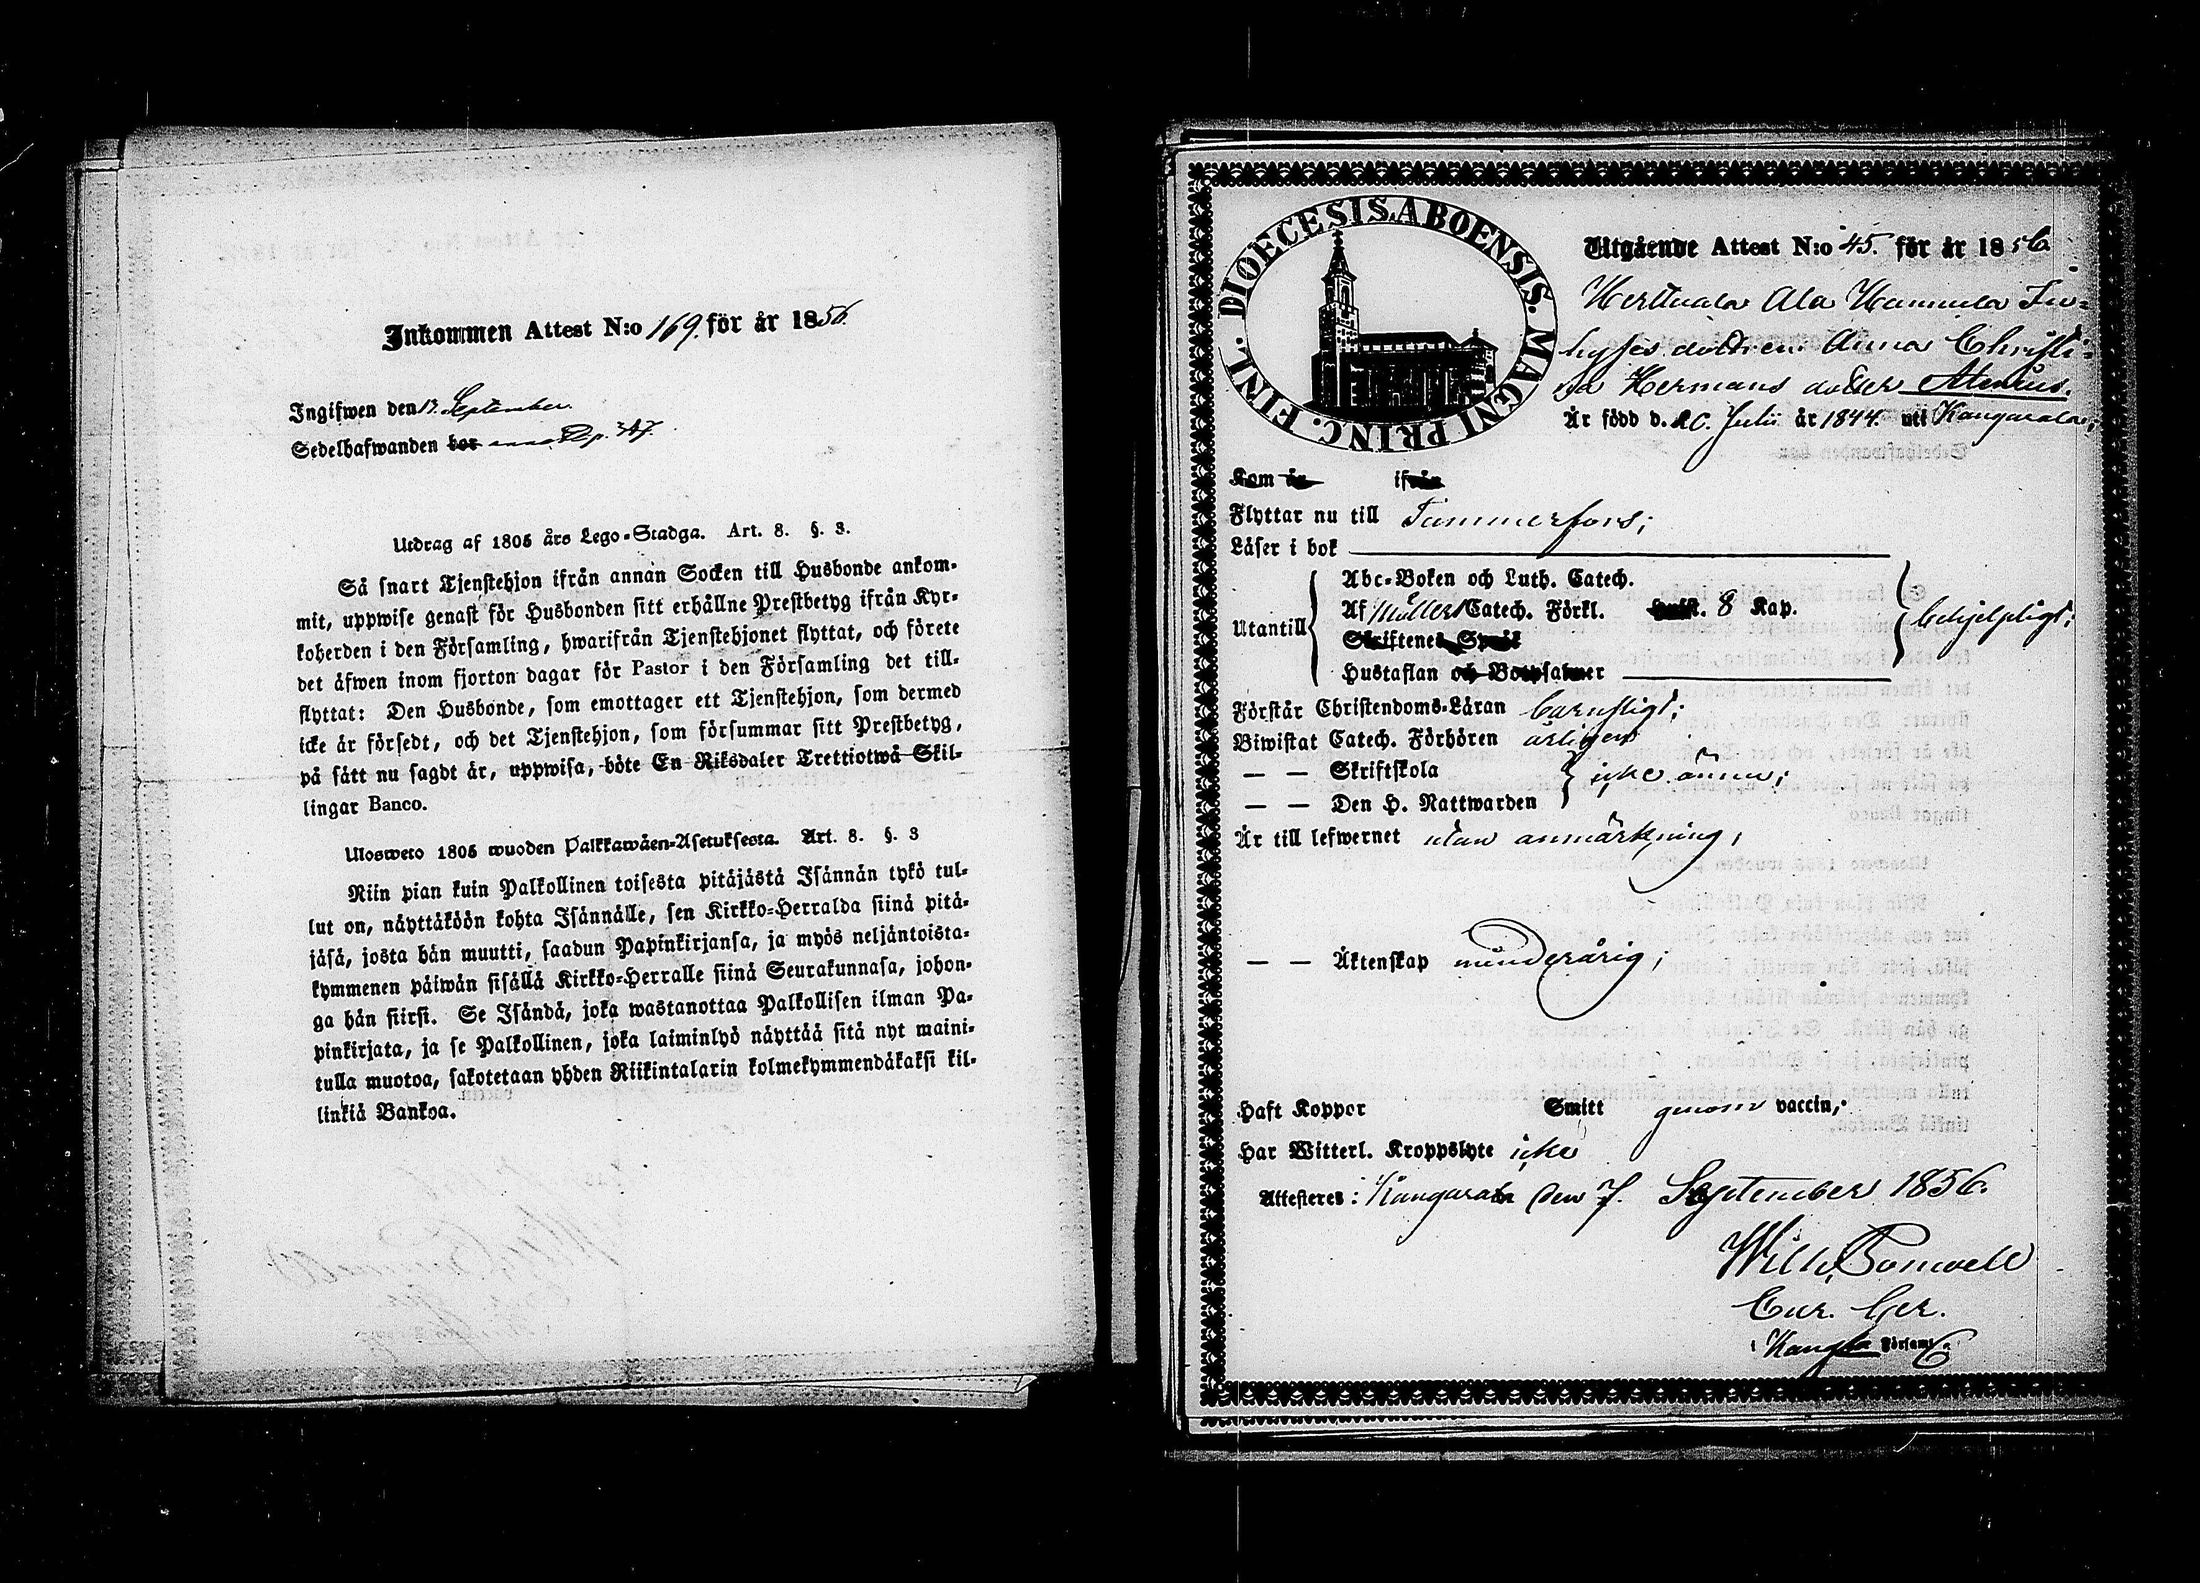 Inkommen Attest N:o 169. för år 1856.
Ingifwen den 13. September.
Sedelhafwanden bor
Utdrag af 1805 års Lego-Stadga. Art. 8. §. 3.
Så snart Tjenstehjon ifrån annan Socken till Husbonde ankom-
mit, uppwise genast för Husbonden sitt erhållne Prestbetyg ifrån Kyr-
koherden i den Församling, hwarifrån Tjenstehjonet flyttat, och förete
det äfwen inom fjorton dagar för Pastor i den Församling det till-
flyttat: Den Husbonde, som emottager ett Tjenstehjon, som dermed
icke är försedt, och det Tjenstehjon, som försummar sitt Prestbetyg,
på sätt nu sagdt är, uppwisa, böte En Riksdaler Trettiotwå Skil-
lingar Banco.
Ulosweto 1805 wuoden Palkkawäen-Asetuksesta. Art. 8. §. 3
Niin pian kuin Palkollinen toisesta pitäjästä Isännän tykö tul-
lut on, näyttäköön kohta Isännälle, sen Kirkko-Herralda siinä pitä-
jäsä, josta hän muutti, saadun Papinkirjansa, ja myös neljäntoista-
kymmenen päiwän sisällä Kirkko-Herralle siinä Seurakunnasa, johon-
ga hän siirsi. Se Isändä, joka wastanottaa Palkollisen ilman Pa-
pinkirjata, ja se Palkollinen, joka laiminlyö näyttää sitä nyt maini-
tulla muotoa, sakotetaan yhden Riikintalarin kolmekymmendäkaksi kil-
linkiä Bankoa.
DIOECESIS ABOENSIS. MAGNI PRINC. FINL.
Utgående Attest N:o 45. för år 1856
Herttuala Ala Hannula In-
hyses dottren Anna Christi-
na Hermans dotter
Är född d. 26. Julii år 1844. uti Kangasala;
Kom år ifrån
Flyttar nu till Tammerfors;
Läser i bok
Abc-Boken och Luth. Catech.
Utantill Af Möllers Catech. Förkl. 8 Kap. behjelpligt;
Skriftenes Språk
Hustaflan och Botpsalmer
Förstår Christendoms-Läran barnsligt;
Biwistat Catech. Förhören årligen
— — Skriftskola icke ännu;
— — Den H. Nattwarden
Är till lefwernet utan anmärkning;
— — Äktenskap minderårig;
Haft Koppor Smitt genom vaccin;
Har Witterl. Kroppslyte icke
Attesteres: Kangasala den 7. September 1856.
Wilh.
Cur. Ger.
Kangla Församl.